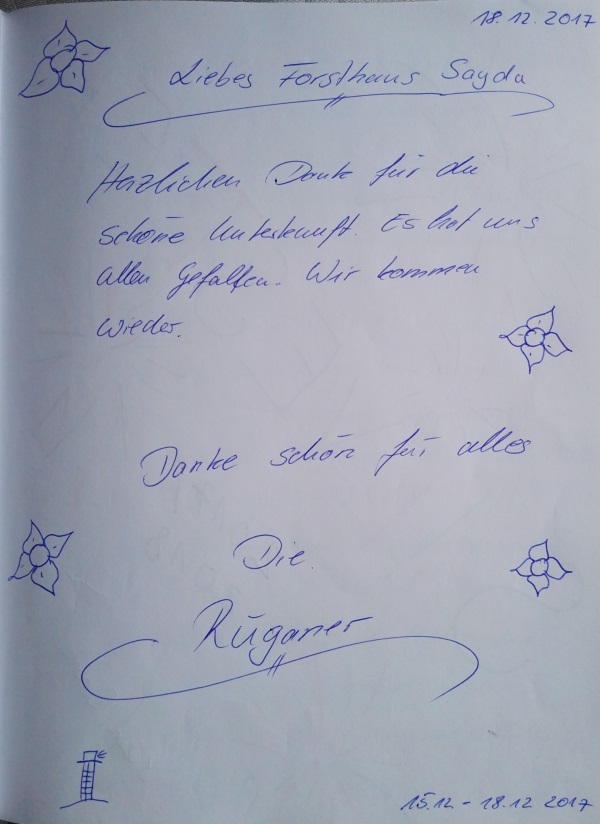 18.12.2017
Liebes Forsthaus Sayda
Herzlichen Dank für die
schöne Unterkunft. Es hat uns
allen Gefallen. Wir kommen
wieder.
Danke schön für alles
Die
Rüganer
15.12 - 18.12 2017